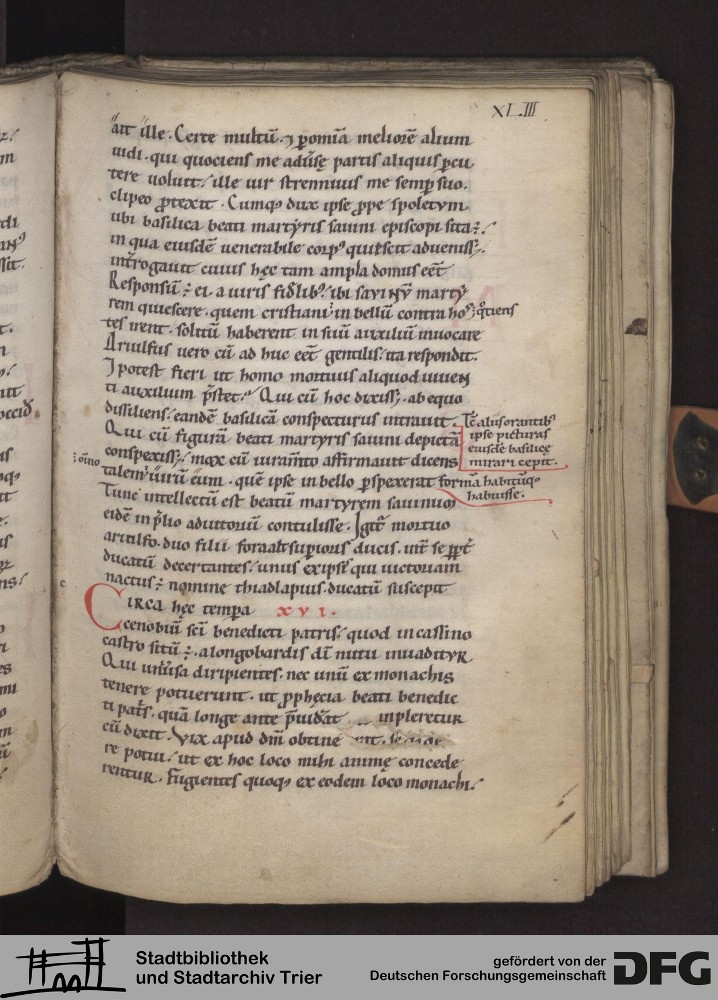 XLIII
ait ille. Certe multū. ⁊ ꝑ omīa meliorē alium
uidi. qui quociens me aduſę partis aliquis ꝑcu
tere uoluit. ille uir strennuus me semꝑ suo.
clipeo ꝓtexit. Cumqꝫ dux ipse ꝓpe spoletum
ubi basilica beati martyris sauini episcopi sita ÷.
in qua eiusdē uenerabile corpꝰ quiescit aduenisset.
interrogauit cuius hęc tam ampla domus eēt
Responsū ÷ ei. a uiris fidelibꝰ. ibi sauinū marty
rem quiescere. quem cristiani in bellū contra hostes qͦtiens
tes irent. solitū haberent in suū auxiliū inuocare
Ariulfus uero cū ad huc eēt gentilis. ita respondit.
I potest fieri ut homo mortuus aliquod uiuen
ti auxilium p̄stet. Qui cū hoc dixisset. ab equo
dissiliens. eandē basilicā conspecturus intrauit.
Tc̄ aliis orantibꝰ
ipse picturas
eiusdē basilicę
mirari cepit.
Qui cū figurā beati martyris sauini depictā
conspexisset. mox cū iuram̄to affirmauit dicens
:oīno
talem uirū eum. quē ipse in bello ꝑspexerat formā habitūqꝫ
habuisse.
Tunc intellectū est beatū martyrem sauinum
eidē in p̄lio adiutoriū contulisse. Igit̄ mortuo
ariulfo. duo filii foraalt suꝑioris ducis. int̄ se ꝓpt̄
ducatū decertantes. unus ex ipsis qui uictoriam
nactus ÷ nomine thiadlapius. ducatū suscepit
CIRCA hęc temꝑa XVI.
cenobiū sc̄i benedicti patris. quod in cassino
castro sitū ÷. a longobardis dū nutu inuadityR
Qui uniūsa diripientes. nec unū ex monachis
tenere potuerunt. ut ꝓphęcia beati benedic
ti patͥs. quā longe ante p̄uidat impleretur
cū dixit. Vix apud dm̄ obtine
re potui. ut ex hoc loco mihi animę concede
rentur. Fugientes quoqꝫ ex eodem loco monachi.
Stadtbibliothek
und Stadtarchiv Trier
gefördert von der
Deutschen Forschungsgemeinschaft
DFG